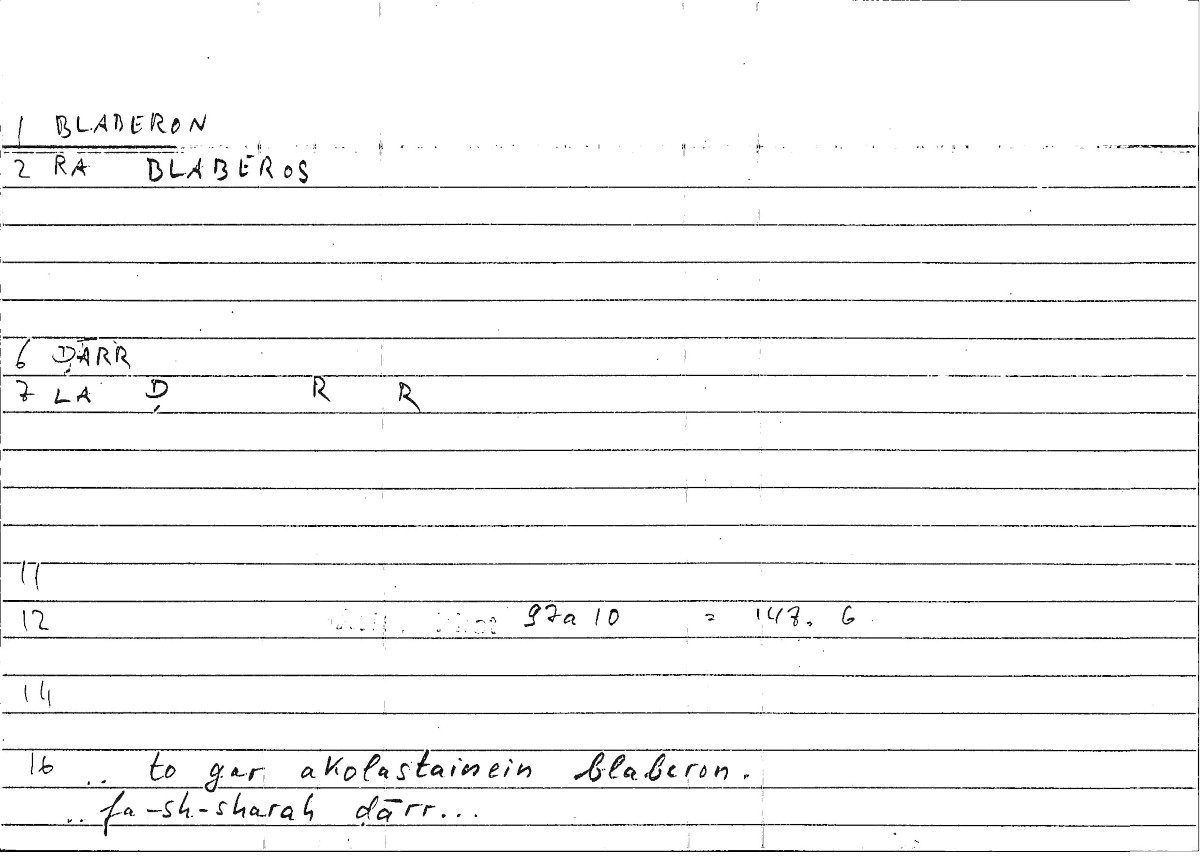 1 BLABERON
2 RA BLABEROS
6 ḌĀRR
7 LA Ḍ R R
11
12 97a 10 = 147, 6
14
16 .. to gar akolastainein blaberon.
.. fa-sh-sharah ḍārr...